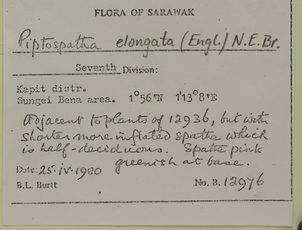 FLORA OF SARAWAK
Piptospatha elongata (Engl.) N.E.Br.
Seventh Division:
Kapit distr.
Sungei Bena area. 1°56'N 1'13°8'E
Adjacent to plants of 12936, but with
shorter more inflated spathe which
is half-deciduous. Spathe pink
greenish at base.
Date: 25.iv.1980
B.L. Burtt No. B. 12976